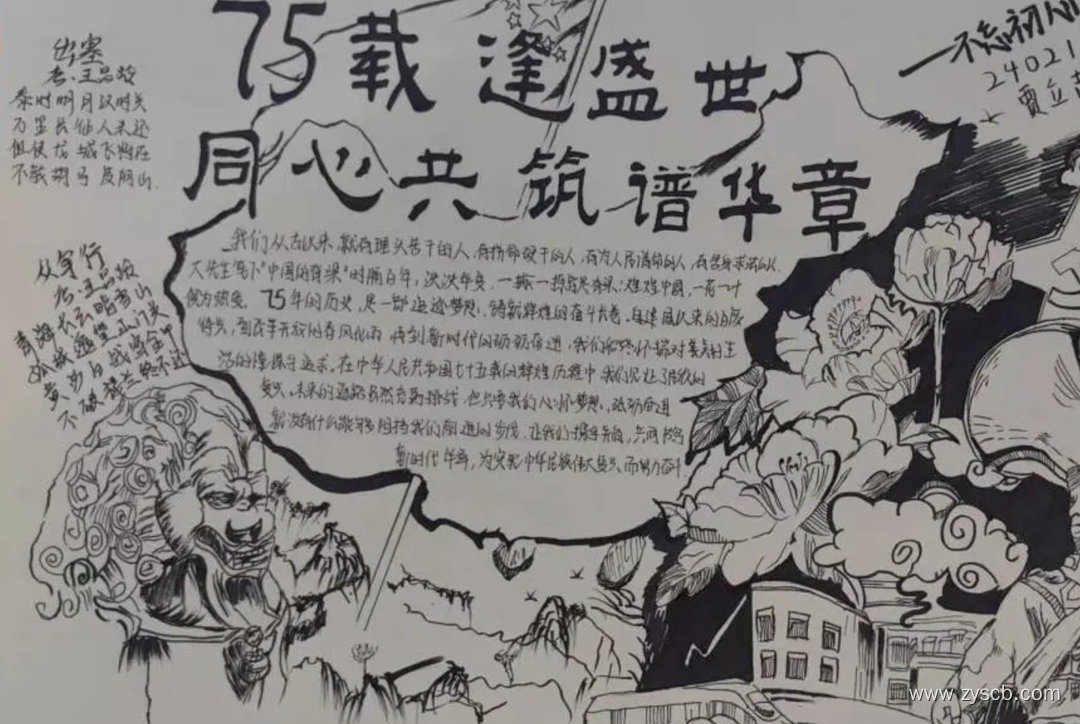 75载逢盛世
同心共筑谱华章
一不忘初心
24021
贾立
出塞
唐·王昌龄
秦时明月汉时关
万里长征人未还
但使龙城飞将在
不教胡马度阴山.
从军行
唐·王昌龄
青海长云暗雪山
孤城遥望玉门关
黄沙百战穿金甲
不破楼兰终不还
我们从古以来,就有埋头苦干的人,有拼命硬干的人,有为人民请命的人,有舍身求法的人.
大先生笔下"中国的脊梁"时隔百年,
煌煌中国,一有一寸
75年的历史,是一部追逐梦想,铸就辉煌的奋斗长卷.自建国以来的
到改革开放的春风化雨,再到新时代的砥砺奋进,我们始终怀揣对美好的生
活的憧憬与追求.在中华人民共和国七十五载的辉煌历程中,我们见证了民族的
复兴.未来的道路虽然充满挑战,但只要我们心怀梦想,砥砺奋进
就没有什么能够阻挡我们前进的步伐.让我们携手并肩,共同书写
新时代华章,为实现中华民族伟大复兴而努力奋斗
www.zyscb.com